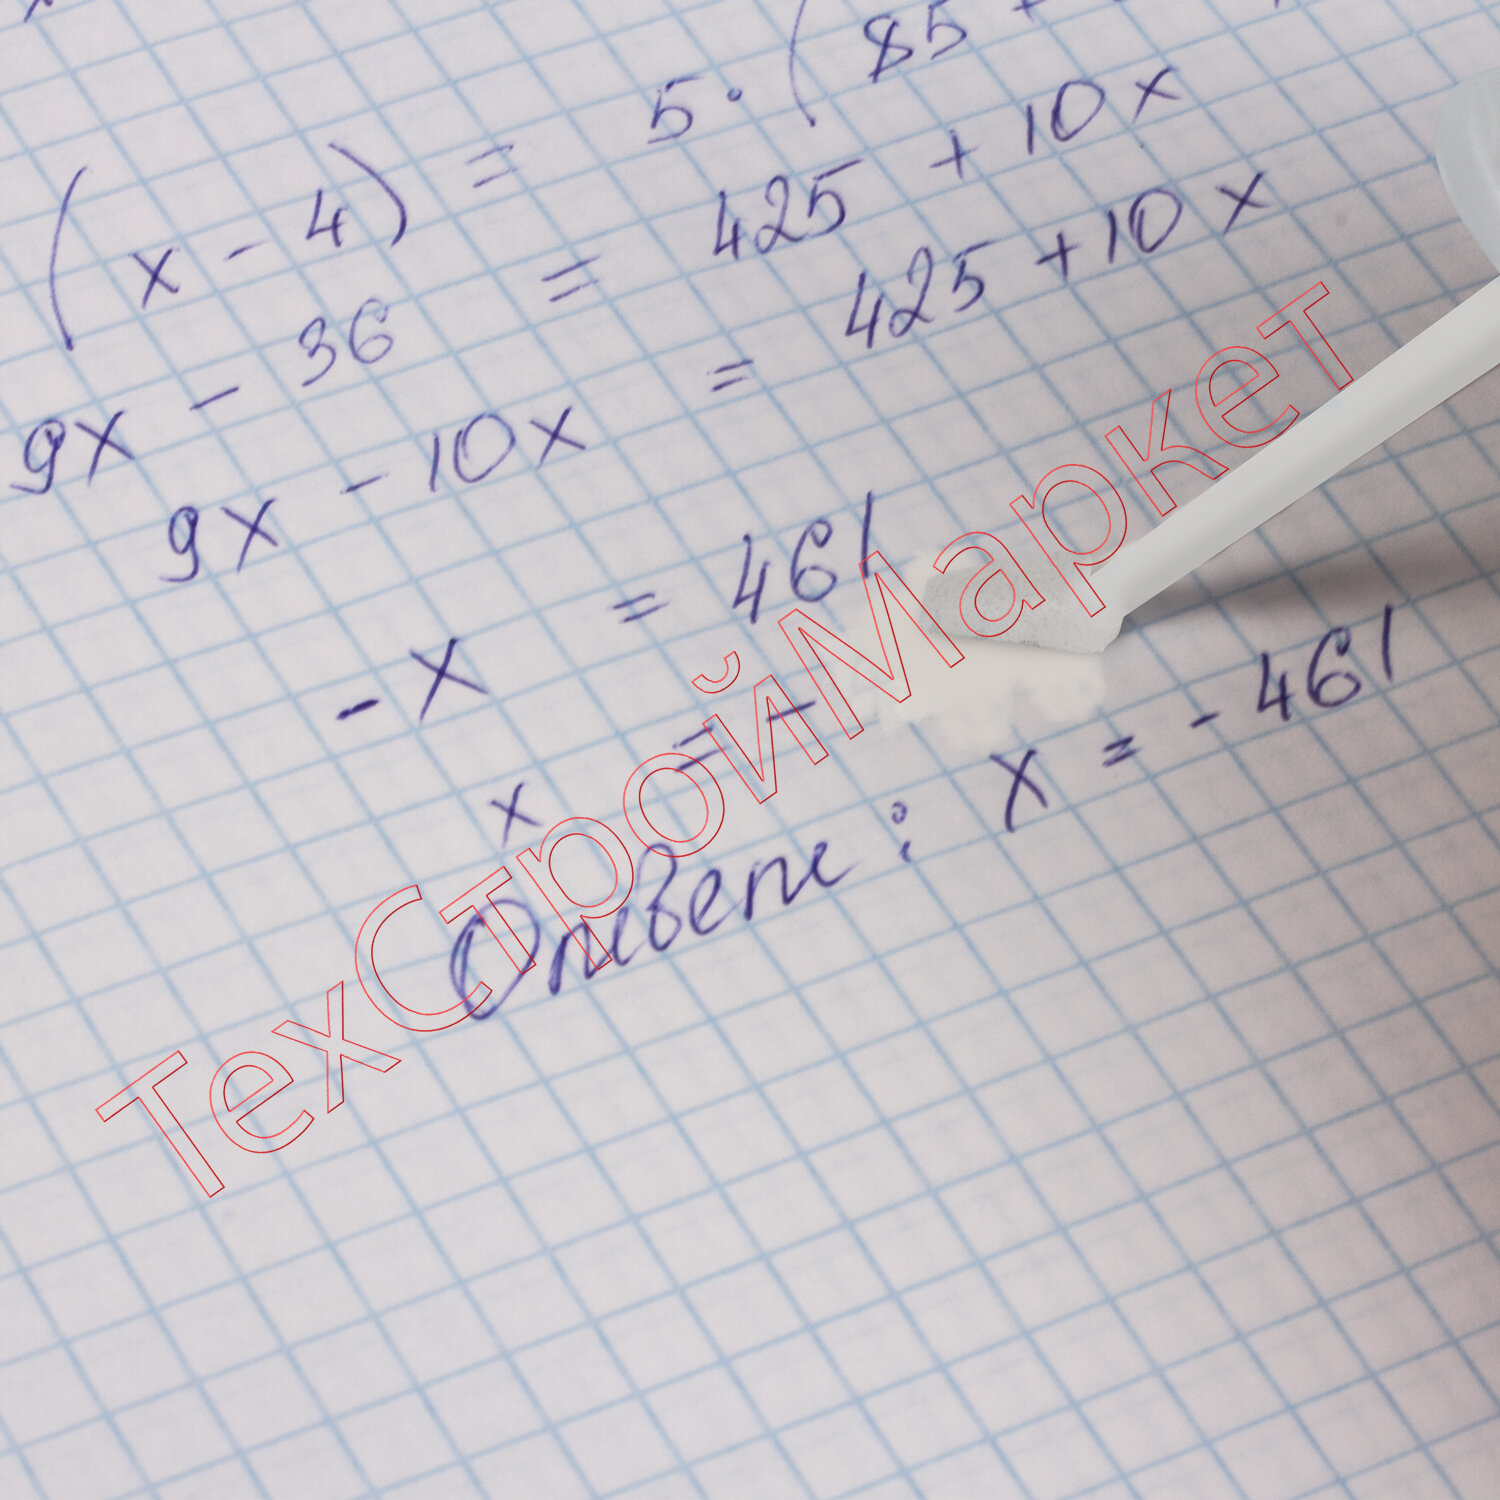 (x - 4) = 5 · (85 +
9x - 36 = 425 + 10x
9x - 10x = 425 + 10x
-x = 461
x = -
Ответ: x = - 461
ТехСтройМаркет